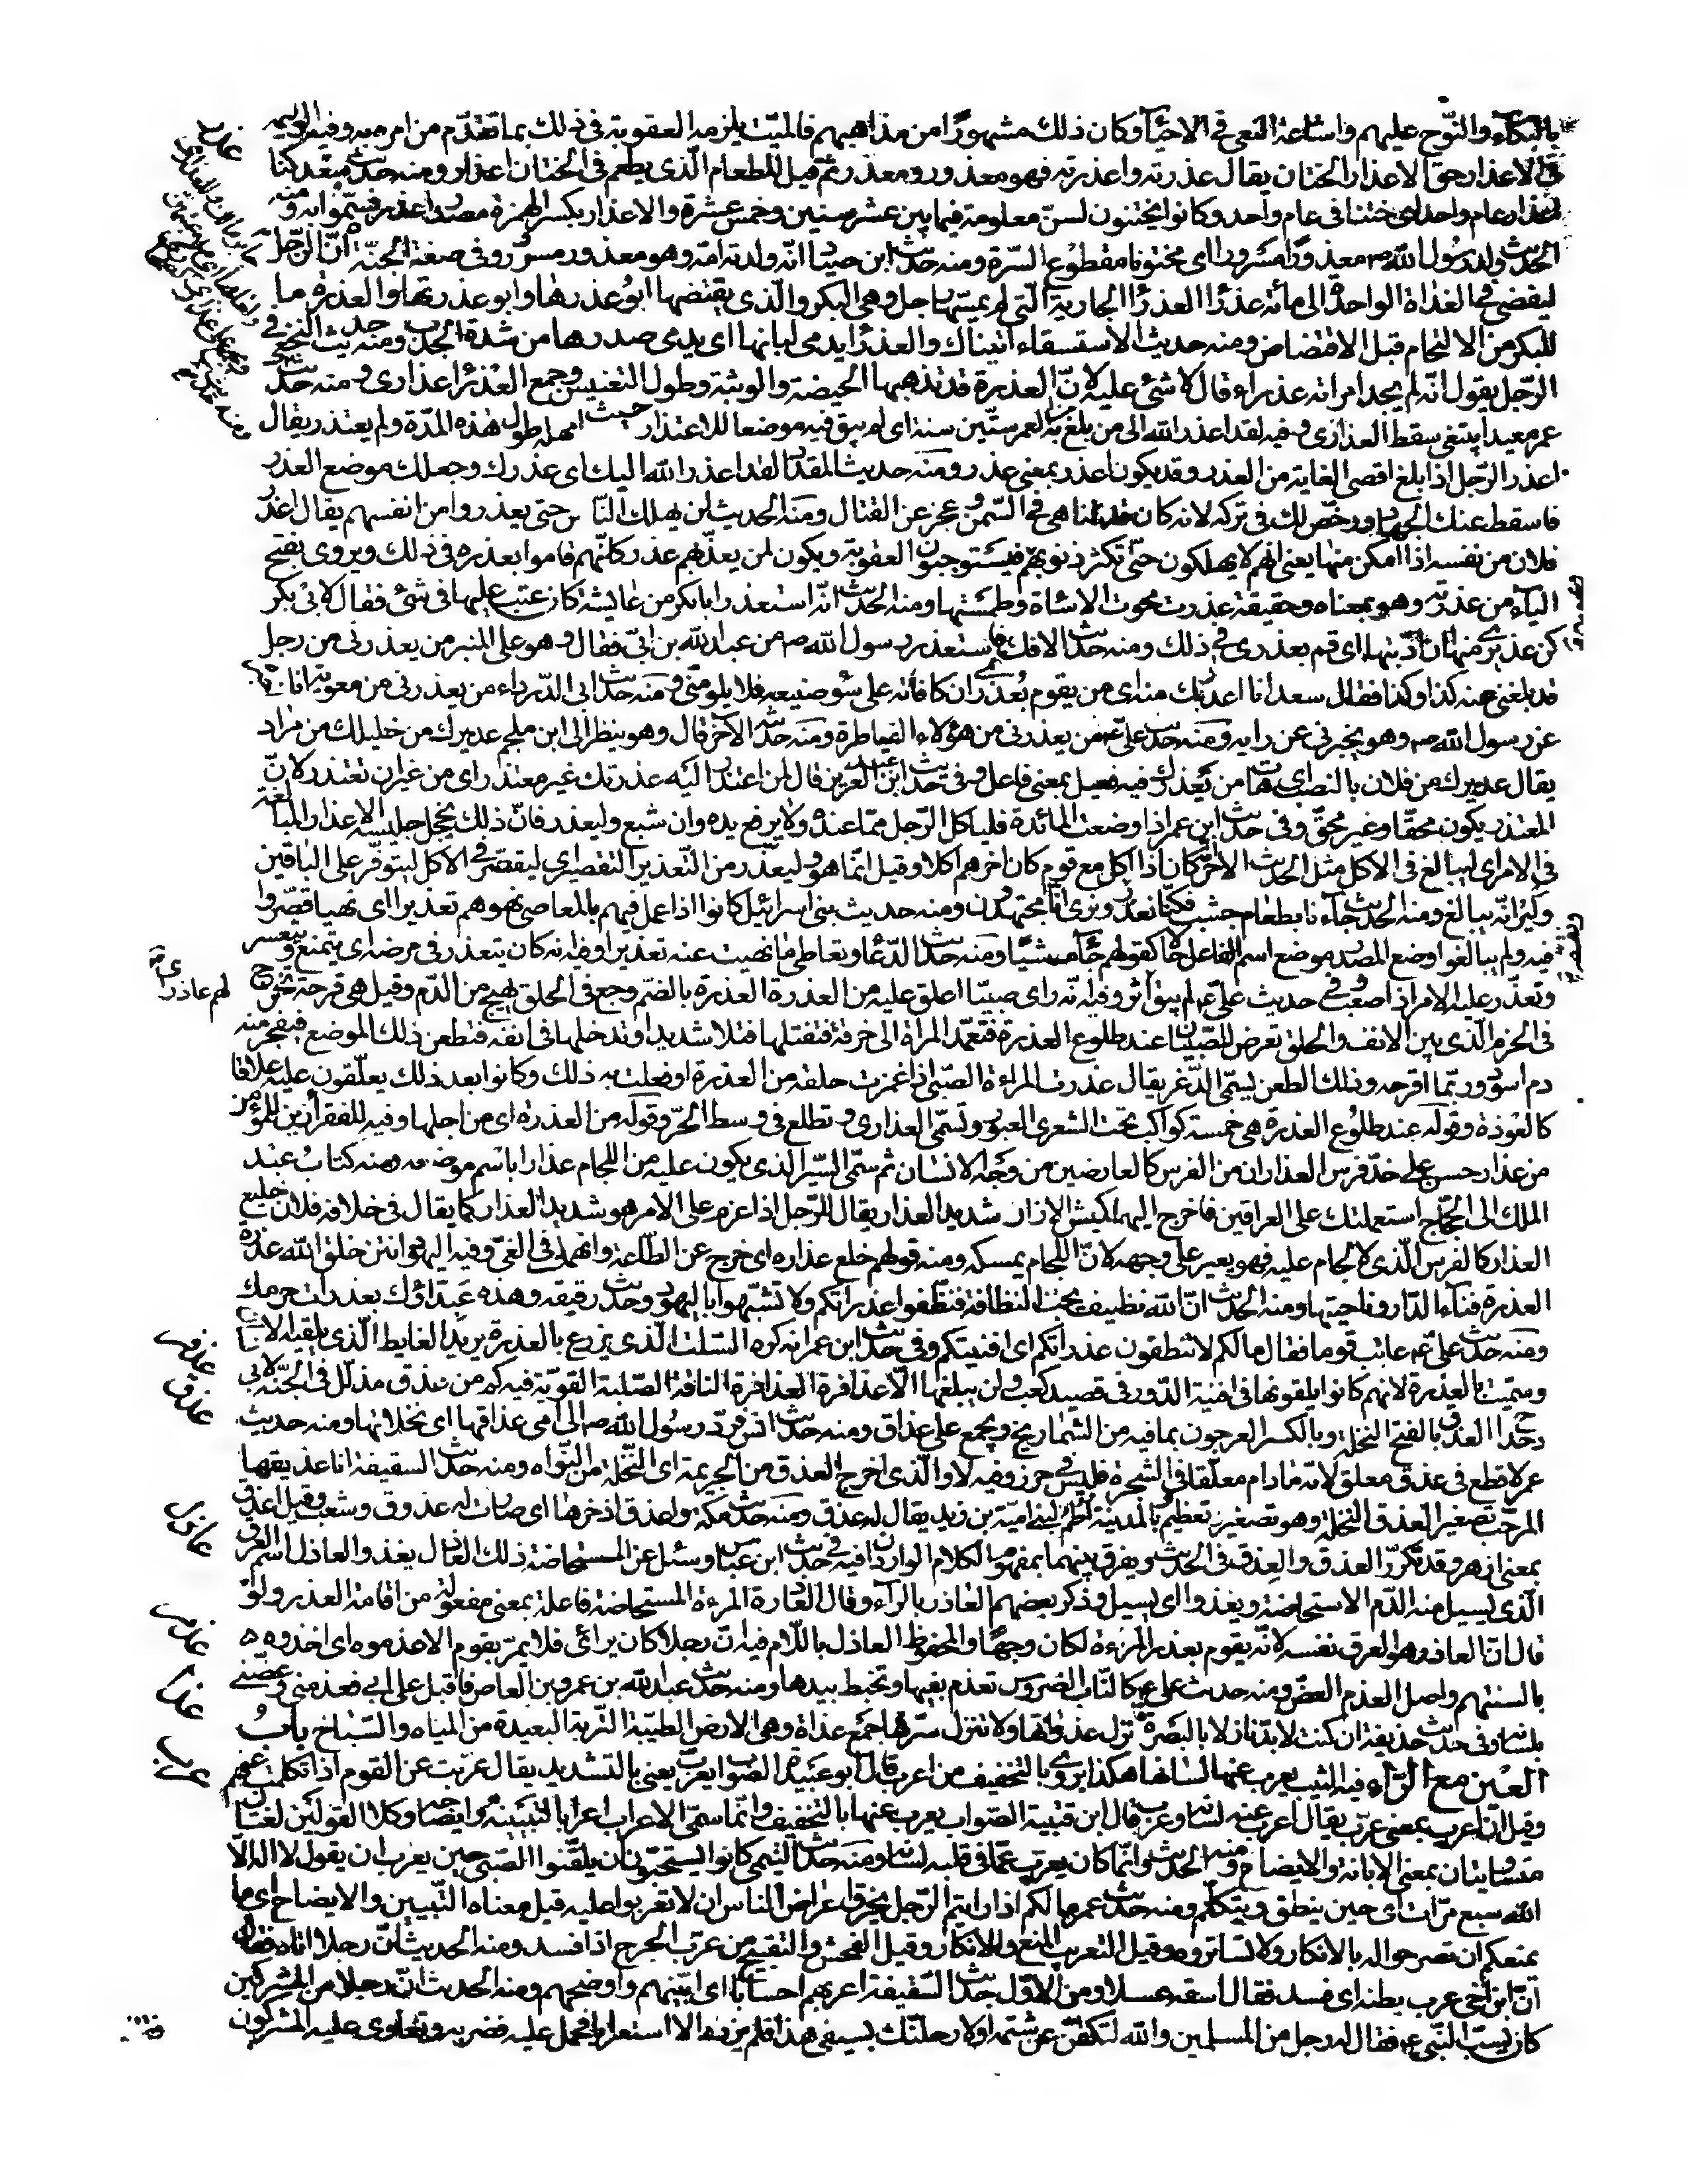 بالبكاء والنوح عليهم واشاعة النعى فى الاحياء وكان ذلك مشهورا من مذاهبهم فالميت يلزمه العقوبة فى ذلك بما تقدم من امره به وفيه الوليمة
فى الاعذار حق الاعذار الختان يقال عذرته واعذرته فهو معذور ومعذر ثم قيل للطعام الذى يطعم فى الختان اعذار ومنه حديث سعد كنا
اعذار عام واحد اى ختنا فى عام واحد وكانوا يختنون لسن معلومة فيما بين عشر سنين وخمس عشرة والاعذار بكسر الهمزة مصدر اعذر فسموا به ومنه
الحديث ولد رسول الله ص معذورا مسرورا اى مختونا مقطوع السرة ومنه حديث ابن صياد انه ولدته امه وهو معذور مسرور وفى صفة الجنة ان الرجل
ليفضى فى الغداة الواحدة الى مائة عذراء العذراء الجارية التى لم يمسها رجل وهى البكر والذى يفتضها ابو عذرها وابو عذرتها والعذرة ما
للبكر من الالتحام قبل الافتضاض ومنه حديث الاستسقاء اتيناك والعذراء يدمى لبانها اى يدمى صدرها من شدة الجدب ومنه حديث النخعى فى
الرجل يقول انه لم يجد امراته عذراء قال لا شئ عليه لان العذرة قد تذهبها الحيضة والوثبة وطول التعنيس وجمع العذراء عذارى ومنه حديث
عمر معيدا يبتغى سقط العذارى وفيه لقد اعذر الله الى من بلغ به العمر ستين سنة اى لم يبق فيه موضعا للاعتذار حيث امهله طول هذه المدة ولم يعتذر يقال
اعذر الرجل اذا بلغ اقصى الغاية من العذر وقد يكون اعذر بمعنى عذر ومنه حديث المقداد لقد اعذر الله اليك اى عذرك وجعلك موضع العذر
فاسقط عنك الجهاد ورخص لك فى تركه لانه كان قد تناهى فى السمن وعجز عن القتال ومنه الحديث لن يهلك الناس حتى يعذروا من انفسهم يقال اعذر
فلان من نفسه اذا امكن منها يعنى انهم لا يهلكون حتى تكثر ذنوبهم فيستوجبون العقوبة ويكون لمن يعذبهم عذر كانهم قاموا بعذره فى ذلك ويروى بفتح
الياء من عذرته وهو بمعناه وحقيقة عذرت محوت الاساءة وطمستها ومنه الحديث انه استعذر ابا بكر من عايشة كان عتب عليها فى شئ فقال لابى بكر
كن عذيرى منها ان ادبتها اى قم بعذرى فى ذلك ومنه حديث الافك فاستعذر رسول الله ص من عبد الله بن ابى فقال وهو على المنبر من يعذرنى من رجل
قد بلغنى عنه كذا وكذا فقال سعد انا اعذرك منه اى من يقوم بعذرى ان كافاته على سوء صنيعه فلا يلومنى ومنه حديث ابى الدرداء من يعذرنى من معوية انا اخبره
عن رسول الله ص وهو يخبرنى عن رايه ومنه حديث على ع من يعذرنى من هؤلاء الضياطرة ومنه حديثه الاخر قال وهو ينظر الى ابن ملجم عذيرك من خليلك من مراد
يقال عذيرك من فلان بالنصب اى هات من يعذرك فيه فعيل بمعنى فاعل وفى حديث ابن عبد العزيز قال لمن اعتذر اليه عذرتك غير معتذر اى من غير ان تعتذر لان
المعتذر يكون محقا وغير محق وفى حديث ابن عمر اذا وضعت المائدة فلياكل الرجل مما عنده ولا يرفع يده وان شبع وليعذر فان ذلك يخجل جليسه الاعذار المبالغة
فى الامر اى ليبالغ فى الاكل مثل الحديث الاخر انه كان اذا اكل مع قوم كان اخرهم اكلا وقيل انما هو وليعذر من التعذير التقصير اى ليقصر فى الاكل ليتوفر على الباقين
ولير انه يبالغ ومنه الحديث جاءنا بطعام جشب فكنا نعذر ونرى انا مجتهدون ومنه حديث بنى اسرائيل كانوا اذا عمل فيهم بالمعاصى نهوهم تعذيرا اى نهيا قصروا
فيه ولم يبالغوا وضع المصدر موضع اسم الفاعل حالا كقولهم جاء مشيا ومنه حديث الدعاء وتعاطى ما نهيت عنه تعذيرا وفيه انه كان يتعذر فى مرضه اى يتمنع ويتعسر
وتعذر عليه الامر اذا صعب وفى حديث على ع لم يبق اثر وفيه انه راى صبيا اعلق عليه من العذرة العذرة بالضم وجع فى الحلق يهيج من الدم وقيل هى قرحة تخرج
فى الخرم الذى بين الانف والحلق تعرض للصبيان عند طلوع العذرة فتعمد المراة الى خرقة فتفتلها فتلا شديدا وتدخلها فى انفه فتطعن ذلك الموضع فيفجر منه
دم اسود وربما اقرحه وذلك الطعن يسمى الدغر يقال عذرت المراءة الصبى اذا غمزت حلقه من العذرة او فعلت به ذلك وكانوا بعد ذلك يعلقون عليه علاقا
كالعوذة وقوله عند طلوع العذرة هى خمسة كواكب تحت الشعرى العبور وتسمى العذارى وتطلع فى وسط الحر وقوله من العذرة اى من اجلها وفيه للفقر ازين للمؤمن
من عذار حسن على خد فرس العذاران من الفرس كالعارضين من وجه الانسان ثم سمى السير الذى يكون عليه من اللجام عذارا باسم موضعه ومنه كتاب عبد
الملك الى الحجاج استعملتك على العراقين فاخرج اليهما كميش الازار شديد العذار يقال للرجل اذا عزم على الامر هو شديد العذار كما يقال فى خلافه فلان خليع
العذار كالفرس الذى لا لجام عليه فهو يعير على وجهه لان اللجام يمسكه ومنه قولهم خلع عذاره اى خرج عن الطاعة وانهمك فى الغى وفيه اليهود انتن خلق الله عذرة
العذرة فناء الدار وناحيتها ومنه الحديث ان الله نظيف يحب النظافة فنظفوا عذراتكم ولا تشبهوا باليهود وحديث رقيقة وهذه عبداؤك بعذرات حرمك
ومنه حديث على ع عاتب قوما فقال مالكم لا تنظفون عذراتكم اى افنيتكم وفى حديث ابن عمر انه كره السلت الذى يزرع بالعذرة يريد الغايط الذى يلقيه الانسان
وسميت بالعذرة لانهم كانوا يلقونها فى افنية الدور فى قصيد كعب ولن يبلغها الا عذافرة العذافرة الناقة الصلبة القوية فيه كم من عذق مذلل فى الجنة لابى
دحداح العذق بالفتح النخلة وبالكسر العرجون بما فيه من الشماريخ ويجمع على عذاق ومنه حديث انس فرد رسول الله ص الى امى عذاقها اى نخلاتها ومنه حديث
عمر لا قطع فى عذق معلق لانه مادام معلقا فى الشجرة فليس فى حرز وفيه لا والذى اخرج العذق من الجريمة اى النخلة من النواة ومنه حديث السقيفة انا عذيقها
المرجب تصغير العذق النخلة وهو تصغير تعظيم بالمدينة اطم لبنى امية بن زيد يقال له عذق ومنه حديث مكة واعذق اذخرها اى صارت له عذوق وشعب وقيل اعذق
بمعنى ازهر وقد تكرر العذق والعذق فى الحديث ويفرق بينهما بمفهوم الكلام الواردان فيه فى حديث ابن عباس وسئل عن المستحاضة ذلك العاذل يغذو العاذل اسم العرق
الذى يسيل منه الدم الاستحاضة ويغذو اى يسيل وذكر بعضهم العاذر بالراء وقال العاذرة المرءة المستحاضة فاعلة بمعنى مفعولة من اقامة العذر ولو
قال ان العاذر هو العرق نفسه لانه يقوم بعذر المرءة لكان وجها والمحفوظ العاذل باللام فيه ان رجلا كان يرائى فلا يمر بقوم الا عذموه اى اخذوه
بالسنتهم واصل العذم العض ومنه حديث على ع كالناب الضروس تعذم بفيها وتخبط بيدها ومنه حديث عبد الله بن عمرو بن العاص فاقبل على ابى فعذمنى وعضنى
بلسانه وفى حديث حذيفة ان كنت لابد نازلا بالبصرة فانزل عذواتها ولا تنزل سرتها جمع عذاة وهى الارض الطيبة التربة البعيدة من المياه والسباخ باب
العين مع الراء فيه الثيب يعرب عنها لسانها هكذا يروى بالتخفيف من اعرب قال ابو عبيد الصواب يعرب يعنى بالتشديد يقال عربت عن القوم اذا تكلمت عنهم
وقيل ان اعرب بمعنى عرب يقال اعرب عنه لسانه وعرب قال ابن قتيبة الصواب يعرب عنها بالتخفيف وانما سمى الاعراب اعرابا لتبيينه وايضاحه وكلا القولين لغتان
متساويتان بمعنى الابانة والايضاح ومنه الحديث وانما كان يعرب عما فى قلبه لسانه ومنه حديث التيمى كانوا يستحبون ان يلقنوا الصبى حين يعرب ان يقول لا اله الا
الله سبع مرات اى حين ينطق ويتكلم ومنه حديث عمر مالكم اذا رايتم الرجل يخرق اعراض الناس ان لا تعربوا عليه قيل معناه التبيين والايضاح اى ما
يمنعكم ان تصرحوا له بالانكار ولا تساتروه وقيل التعريب المنع والانكار وقيل الفحش والتقبيح من عرب الجرح اذا فسد ومنه الحديث ان رجلا اتاه فقال
ان ابن اخى عرب بطنه اى فسد فقال اسقه عسلا ومن الاول حديث السقيفة اعربهم احسابا اى ابينهم واوضحهم ومنه الحديث ان رجلا من المشركين
كان يسب النبى ع فقال له رجل من المسلمين والله لتكفن عن شتمه او لارحلنك بسيفى هذا فلم يزدد الا استعرابا فحمل عليه فضربه وتعاوى عليه المشركون
لهم عاذر اى
عذفر
عذق
عاذل
عذم
عذا
عرب